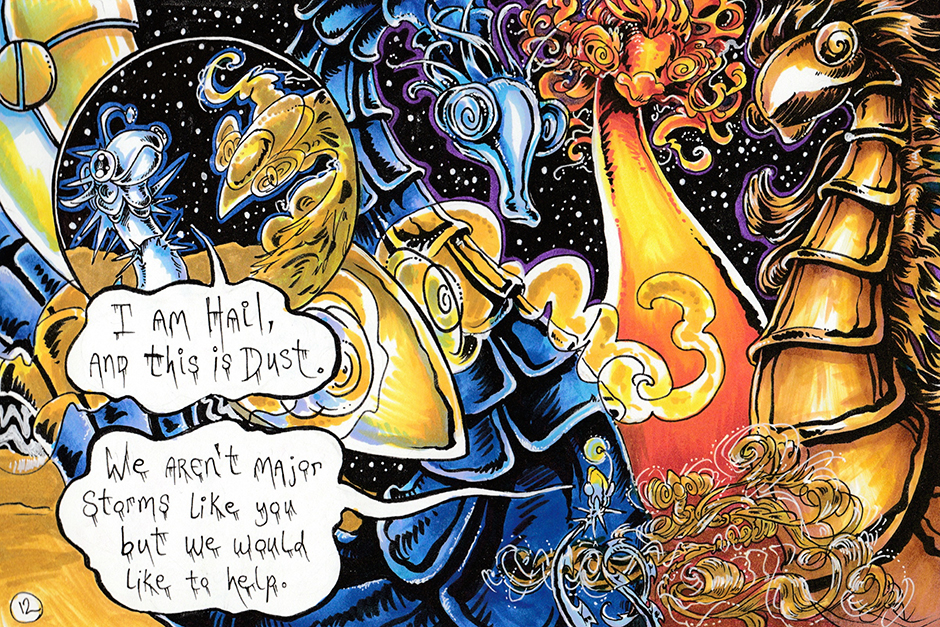 I am Hail,
and this is Dust.
We aren't major
storms like you
but we would
like to help.
12